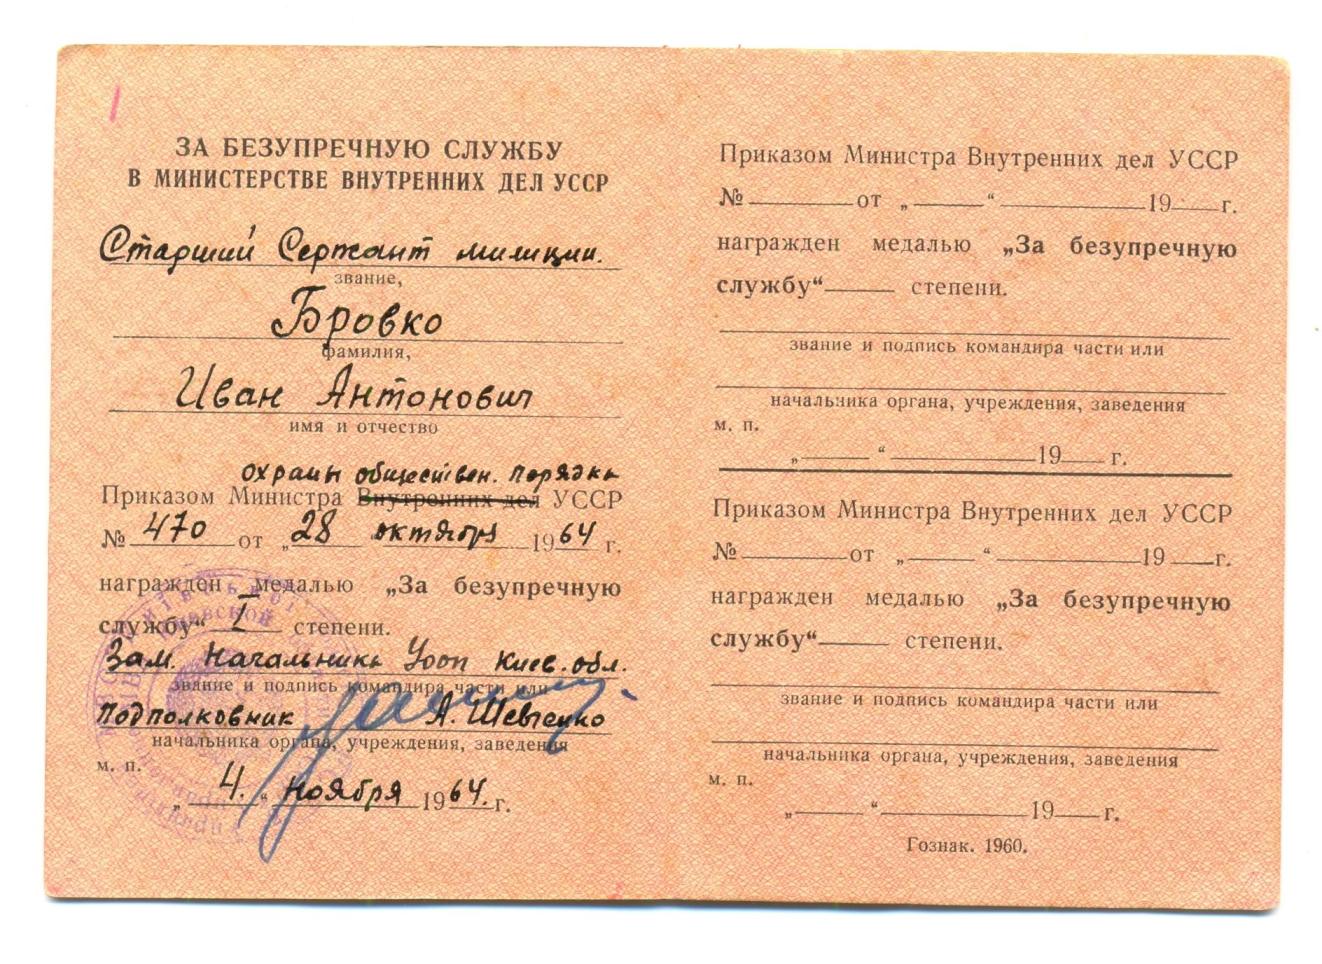 ЗА БЕЗУПРЕЧНУЮ СЛУЖБУ
В МИНИСТЕРСТВЕ ВНУТРЕННИХ ДЕЛ УССР
Старший Сержант милиции.
звание,
Бровко
фамилия,
Иван Антонович
имя и отчество
охраны обществен. порядка
Приказом Министра Внутренних дел УССР
№ 470 от „28 октября 1964 г.
награжден медалью „За безупречную
службу“ I степени.
Зам. Начальника Уооп Киев. обл.
звание и подпись командира части или
подполковник А. Шевченко
начальника органа, учреждения, заведения
м. п.
„ 4. “ ноября 1964. г.
Приказом Министра Внутренних дел УССР
№ от „ “ 19 г.
награжден медалью „За безупречную
службу“ степени.
звание и подпись командира части или
начальника органа, учреждения, заведения
м. п.
„ “ 19 г.
Приказом Министра Внутренних дел УССР
№ от „ “ 19 г.
награжден медалью „За безупречную
службу“ степени.
звание и подпись командира части или
начальника органа, учреждения, заведения
м. п.
„ “ 19 г.
Гознак. 1960.